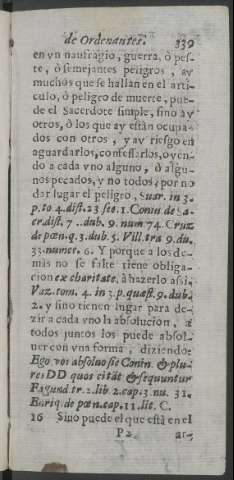 de Ordenantes. 339
en vn naufragio, guerra, ò pes-
te, ò semejantes peligros, ay
muchos que se hallan en el arti-
culo, ò peligro de muerte, pue-
de el Sacerdote simple, sino ay
otros, ò los que ay están ocupa-
dos con otros, y ay riesgo en
aguardarlos, confessarlos, oyen-
do a cada vno alguno, ò algu-
nos pecados, y no todos, por no
dar lugar el peligro, Suar. in 3.
p. to 4. dist. 23 sec. 1. Conin de Sa-
cr. dist. 7 .. dub. 9. num 74. Cruz
de pœn. q. 3. dub. 5. Vill. tra 9. du.
33. numer. 6. Y porque a los de-
màs no se les tiene obliga-
cion ex charitate, à hazerlo assi.
Vaz. tom. 4. in 3. p. quæst. 9. dub.
2. y sino tienen lugar para de-
zir à cada vno la absolucion, à
todos juntos los puede absol-
uer con vna forma, diziendo:
Ego vos absoluo sic Conin. & plu-
res DD quos citāt & sequuntur
Fagund. tr. 2. lib. 2. cap. 3. nu. 31.
Enriq. de pœn. cap. 11. lit. C.
16 Sino puede el que està en el
P 2 ar-